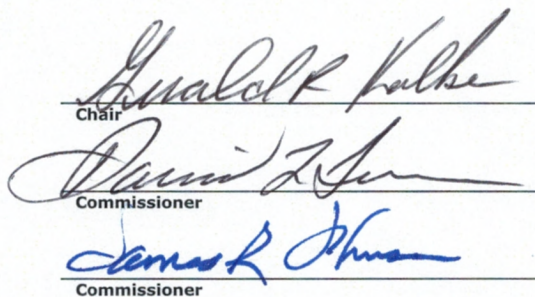 Gerald R Kolbe
Chair
David L
Commissioner
James R Johnson
Commissioner